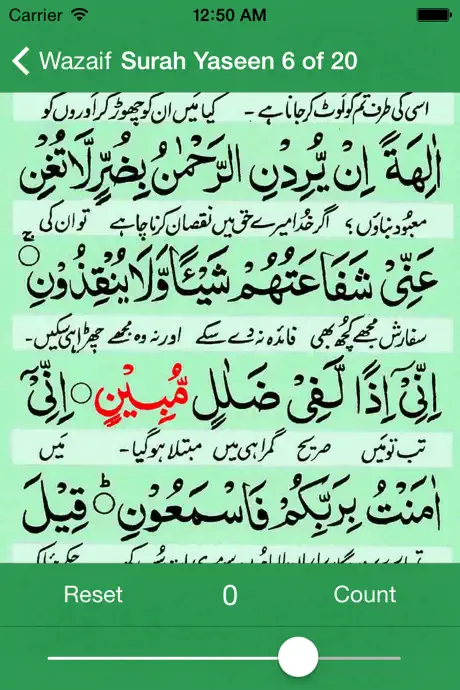 Carrier 12:50 AM
Wazaif Surah Yaseen 6 of 20
اسی کی طرف تم کو لوٹ کر جانا ہے۔ کیا میں ان کو چھوڑ کر اوروں کو
اٰلِهَةً اِنْ يُّرِدْنِ الرَّحْمٰنُ بِضُرٍّ لَّا تُغْنِ
معبود بناؤں؟ اگر خدا میرے حق میں نقصان کرنا چاہے تو ان کی
عَنِّىْ شَفَاعَتُهُمْ شَيْـًٔا وَّلَا يُنْقِذُوْنِ ۚ
سفارش مجھے کچھ بھی فائدہ نہ دے سکے اور نہ وہ مجھے چھڑا ہی سکیں۔
اِنِّىْٓ اِذًا لَّفِىْ ضَلٰلٍ مُّبِيْنٍ ○ اِنِّىْٓ
تب تو میں صریح گمراہی میں مبتلا ہو گیا۔ میں
اٰمَنْتُ بِرَبِّكُمْ فَاسْمَعُوْنِ ○ؕ قِيْلَ
Reset 0 Count